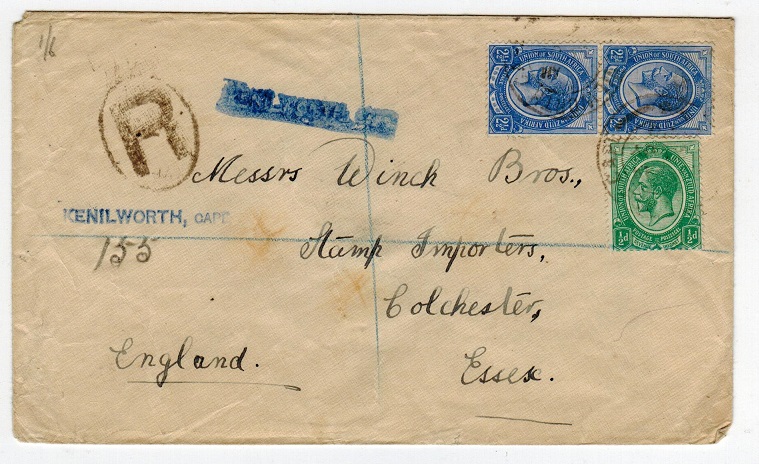 1/6
R
Messrs Winch Bros.,
KENILWORTH, CAPE
155
Stamp Importers,
Colchester,
England.
Essex.
UNION OF SOUTH AFRICA
2½d
UNIE VAN ZUID AFRIKA
2½d
UNION OF SOUTH AFRICA
2½d
UNIE VAN ZUID AFRIKA
2½d
UNION OF SOUTH AFRICA
UNIE VAN ZUID AFRIKA
½d
POSTAGE
½d